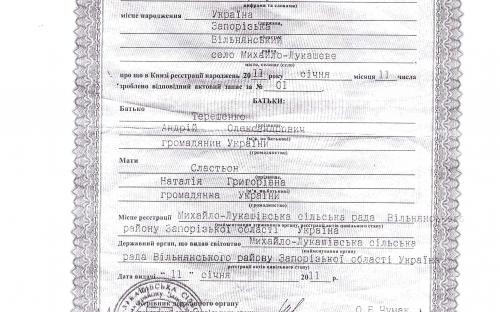 цифрами та словами)
місце народження Україна
(країна,
Запорізька
область
Вільнянський
район
село Михайло-Лукашеве
місто, селище (село)
про що в Книзі реєстрації народжень 2011 року січня місяця 11 числа
зроблено відповідний актовий запис за № 01
БАТЬКИ:
Батько
Терещенко
(прізвище,
Андрій Олександрович
ім'я, по батькові)
громадянин України
(громадянство)
Мати
Сластьон
(прізвище,
Наталія Григорівна
ім'я, по батькові)
громадянка України
(громадянство)
Місце реєстрації Михайло-Лукашівська сільська рада Вільнянсь
району Запорізької області Україна
Державний орган, що видав свідоцтво Михайло-Лукашівська сільська
(найменування
рада Вільнянського району Запорізької області Україна
реєстрації актів цивільного стану)
Дата видачі "11" січня 2011 р.
Керівник державного органу
О.Б.Чумак